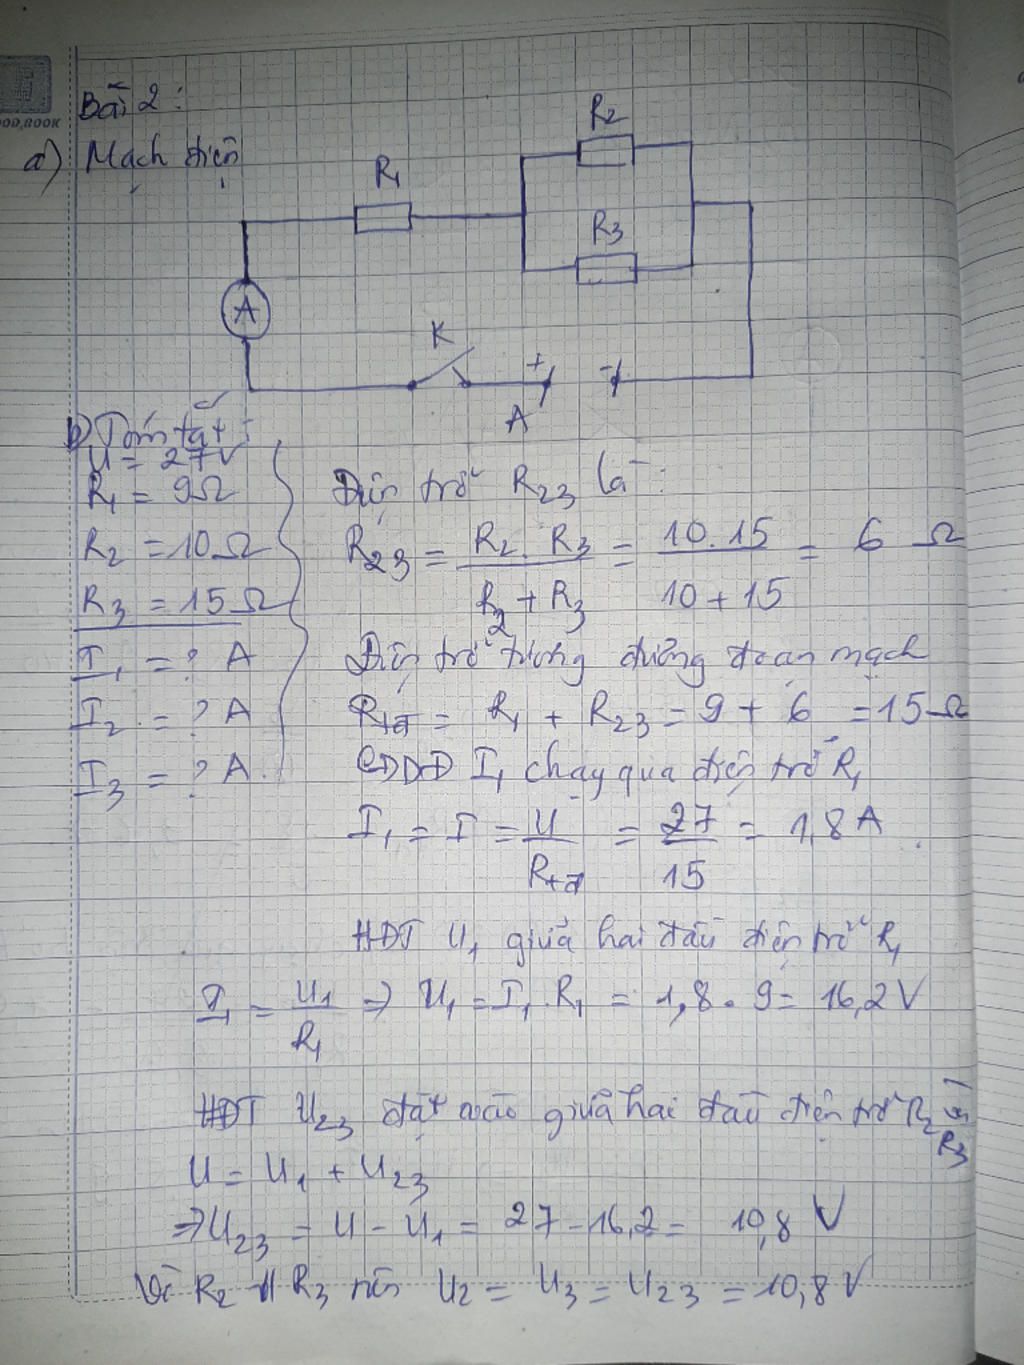 Bài 2:
a) Mạch điện
R1
R2
R3
A
K
+ -
A
b) Tóm tắt:
U = 27V
R1 = 9Ω
R2 = 10Ω
R3 = 15Ω
I1 = ? A
I2 = ? A
I3 = ? A
Điện trở R23 là:
R23 = R2 . R3 / R2 + R3 = 10.15 / 10 + 15 = 6 Ω
Điện trở tương đương đoạn mạch
Rtđ = R1 + R23 = 9 + 6 = 15Ω
CĐDĐ I1 chạy qua điện trở R1
I1 = I = U / Rtđ = 27 / 15 = 1,8 A
HĐT U1 giữa hai đầu điện trở R1
I1 = U1 / R1 => U1 = I1 . R1 = 1,8 . 9 = 16,2 V
HĐT U23 đặt vào giữa hai đầu điện trở R2 và R3
U = U1 + U23
=> U23 = U - U1 = 27 - 16,2 = 10,8 V
Vì R2 // R3 nên U2 = U3 = U23 = 10,8 V